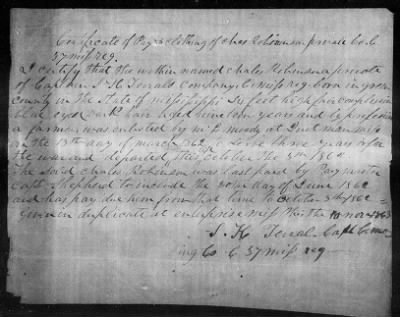 Certificate of Pay & clothing of Chas Robinson private Co C
37 miss reg.
I certify that the within named Charles Robinson a private
of Captain S. H. Terrals Company C miss reg. born in green
county in the State of mississippi feet high fair complexion
blue eyes dark hair aged nineteen years and by profession
a farmer was enlisted by mr moody at Quetman miss
on the 13th day of march 1862 to serve three years or for
the war and departed this October the 5th 186
The Said Charles Robinson was last paid by Paymaster
Capt Shepherd to include the 30th day of June 1862
and has pay due him from that time to October 5th 186
given in duplicate at enterprise miss this the 10 nov 1863
S. H. Terral Capt
Co C 37 miss reg